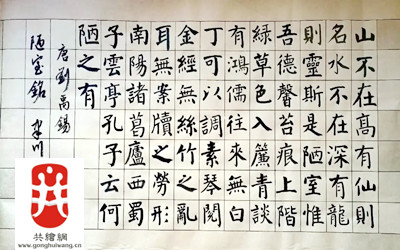 山不在高有仙則
名水不在深有龍
則靈斯是陋室惟
吾德馨苔痕上階
綠草色入簾青談
有鴻儒往來無白
丁可以調素琴閱
金經無絲竹之亂
耳無案牘之勞形
南陽諸葛廬西蜀
子雲亭孔子云何
陋之有
唐劉禹錫
陋室銘
共繪網
www.gonghuiwang.cn